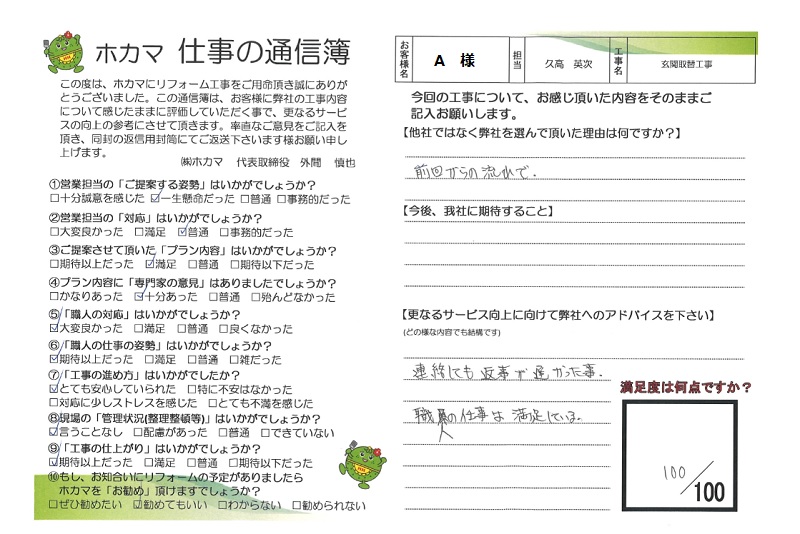 ホカマ 仕事の通信簿
この度は、ホカマにリフォーム工事をご用命頂き誠にありが
とうございました。この通信簿は、お客様に弊社の工事内容
について感じたままに評価していただく事で、更なるサービ
スの向上の参考にさせて頂きます。率直なご意見をご記入を
頂き、同封の返信用封筒にてご返送下さいます様お願い申し
上げます。
㈱ホカマ 代表取締役 外間 慎也
①営業担当の「ご提案する姿勢」はいかがでしょうか?
□十分誠意を感じた ☑一生懸命だった □普通 □事務的だった
②営業担当の「対応」はいかがでしょうか?
□大変良かった □満足 ☑普通 □事務的だった
③ご提案させて頂いた「プラン内容」はいかがでしょうか?
□期待以上だった ☑満足 □普通 □期待以下だった
④プラン内容に「専門家の意見」はありましたでしょうか?
□かなりあった ☑十分あった □普通 □殆んどなかった
⑤「職人の対応」はいかがでしょうか?
☑大変良かった □満足 □普通 □良くなかった
⑥「職人の仕事の姿勢」はいかがでしょうか?
☑期待以上だった □満足 □普通 □雑だった
⑦「工事の進め方」はいかがでしたか?
☑とても安心していられた □特に不安はなかった
□対応に少しストレスを感じた □とても不満を感じた
⑧現場の「管理状況(整理整頓等)」はいかがでしょうか?
☑言うことなし □配慮があった □普通 □できていない
⑨「工事の仕上がり」はいかがでしょうか?
☑期待以上だった □満足 □普通 □期待以下だった
⑩もし、お知合いにリフォームの予定がありましたら
ホカマを「お勧め」頂けますでしょうか?
□ぜひ勧めたい ☑勧めてもいい □わからない □勧められない
お客様名 A 様 担当 久高 英次 工事名 玄関取替工事
今回の工事について、お感じ頂いた内容をそのままご
記入お願いします。
【他社ではなく弊社を選んで頂いた理由は何ですか?】
前回からの流れで.
【今後、我社に期待すること】
【更なるサービス向上に向けて弊社へのアドバイスを下さい】
(どの様な内容でも結構です)
連絡しても返事が遅かった事.
職人の仕事は満足している。
満足度は何点ですか?
100/100